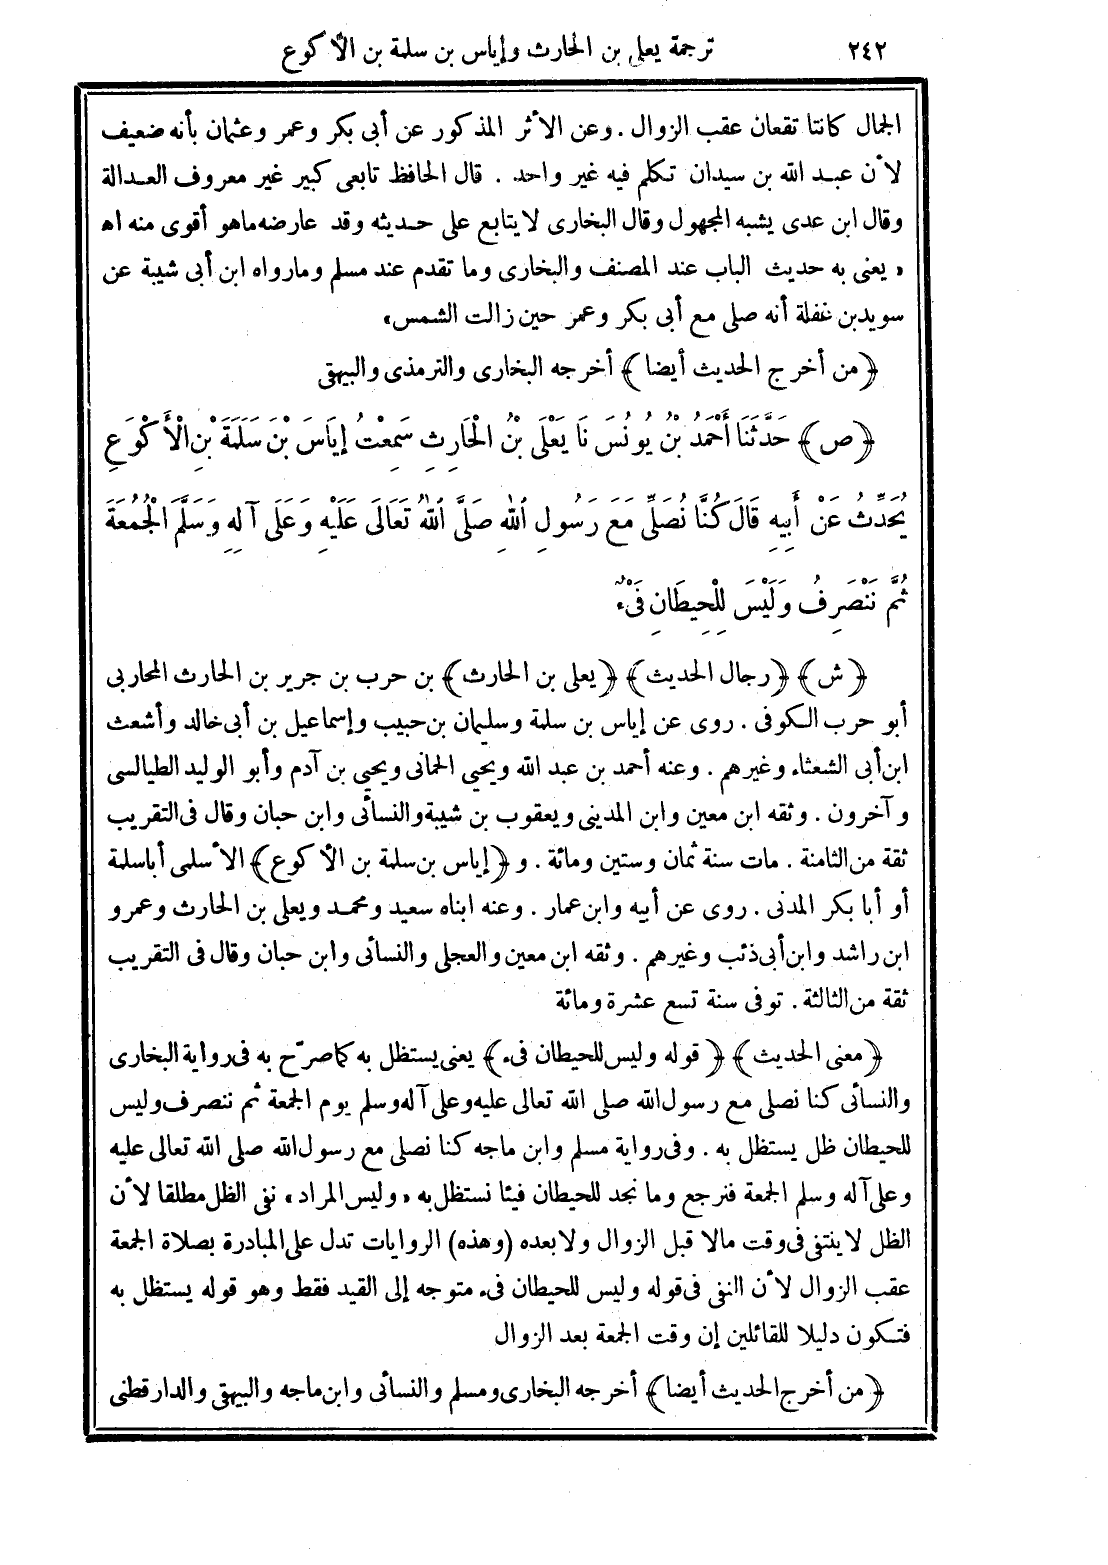 ٢٤٢ ترجمة يعلى بن الحارث وإياس بن سلمة بن الأكوع
الجمال كانتا تقعان عقب الزوال . وعن الأثر المذكور عن أبى بكر وعمر وعثمان بأنه ضعيف
لأن عبد الله بن سيدان تكلم فيه غير واحد . قال الحافظ تابعى كبير غير معروف العدالة
وقال ابن عدى يشبه المجهول وقال البخارى لا يتابع على حديثه وقد عارضه ماهو أقوى منه اه
« يعنى به حديث الباب عند المصنف والبخارى وما تقدم عند مسلم ومارواه ابن أبى شيبة عن
سويد بن غفلة أنه صلى مع أبى بكر وعمر حين زالت الشمس»
﴿من أخرج الحديث أيضا﴾ أخرجه البخارى والترمذى والبيهقى
﴿ص﴾ حَدَّثَنَا أَحْمَدُ بْنُ يُونُسَ نَا يَعْلَى بْنُ الْحَارِثِ سَمِعْتُ إِيَاسَ بْنَ سَلَمَةَ بْنِ الْأَكْوَعِ
يُحَدِّثُ عَنْ أَبِيهِ قَالَ كُنَّا نُصَلِّى مَعَ رَسُولِ اللهِ صَلَّى اللهُ تَعَالَى عَلَيْهِ وَعَلَى آلِهِ وَسَلَّمَ الْجُمُعَةَ
ثُمَّ نَنْصَرِفُ وَلَيْسَ لِلْحِيطَانِ فَىْءٌ
﴿ش﴾ ﴿رجال الحديث﴾ ﴿يعلى بن الحارث﴾ بن حرب بن جرير بن الحارث المحاربى
أبو حرب الكوفى . روى عن إياس بن سلمة وسليمان بن حبيب وإسماعيل بن أبى خالد وأشعث
ابن أبى الشعثاء وغيرهم . وعنه أحمد بن عبد الله ويحيى الحمانى ويحيى بن آدم وأبو الوليد الطيالسى
وآخرون . وثقه ابن معين وابن المدينى ويعقوب بن شيبة والنسائى وابن حبان وقال فى التقريب
ثقة من الثامنة . مات سنة ثمان وستين ومائة . و ﴿إياس بن سلمة بن الأكوع﴾ الأسلمى أبا سلمة
أو أبا بكر المدنى . روى عن أبيه وابن عمار . وعنه ابناه سعيد ومحمد ويعلى بن الحارث وعمرو
ابن راشد وابن أبى ذئب وغيرهم . وثقه ابن معين والعجلى والنسائى وابن حبان وقال فى التقريب
ثقة من الثالثة . توفى سنة تسع عشرة ومائة
﴿معنى الحديث﴾ ﴿قوله وليس للحيطان فىء﴾ يعنى يستظل به كما صرّح به فى رواية البخارى
والنسائى كنا نصلى مع رسول الله صلى الله تعالى عليه وعلى آله وسلم يوم الجمعة ثم ننصرف وليس
للحيطان ظل يستظل به . وفى رواية مسلم وابن ماجه كنا نصلى مع رسول الله صلى الله تعالى عليه
وعلى آله وسلم الجمعة فنرجع وما نجد للحيطان فيئا نستظل به «وليس المراد» نفى الظل مطلقا لأن
الظل لا ينتفى فى وقت ما لا قبل الزوال ولا بعده (وهذه) الروايات تدل على المبادرة بصلاة الجمعة
عقب الزوال لأن النفى فى قوله وليس للحيطان فىء متوجه إلى القيد فقط وهو قوله يستظل به
فتكون دليلا للقائلين إن وقت الجمعة بعد الزوال
﴿من أخرج الحديث أيضا﴾ أخرجه البخارى ومسلم والنسائى وابن ماجه والبيهقى والدارقطنى